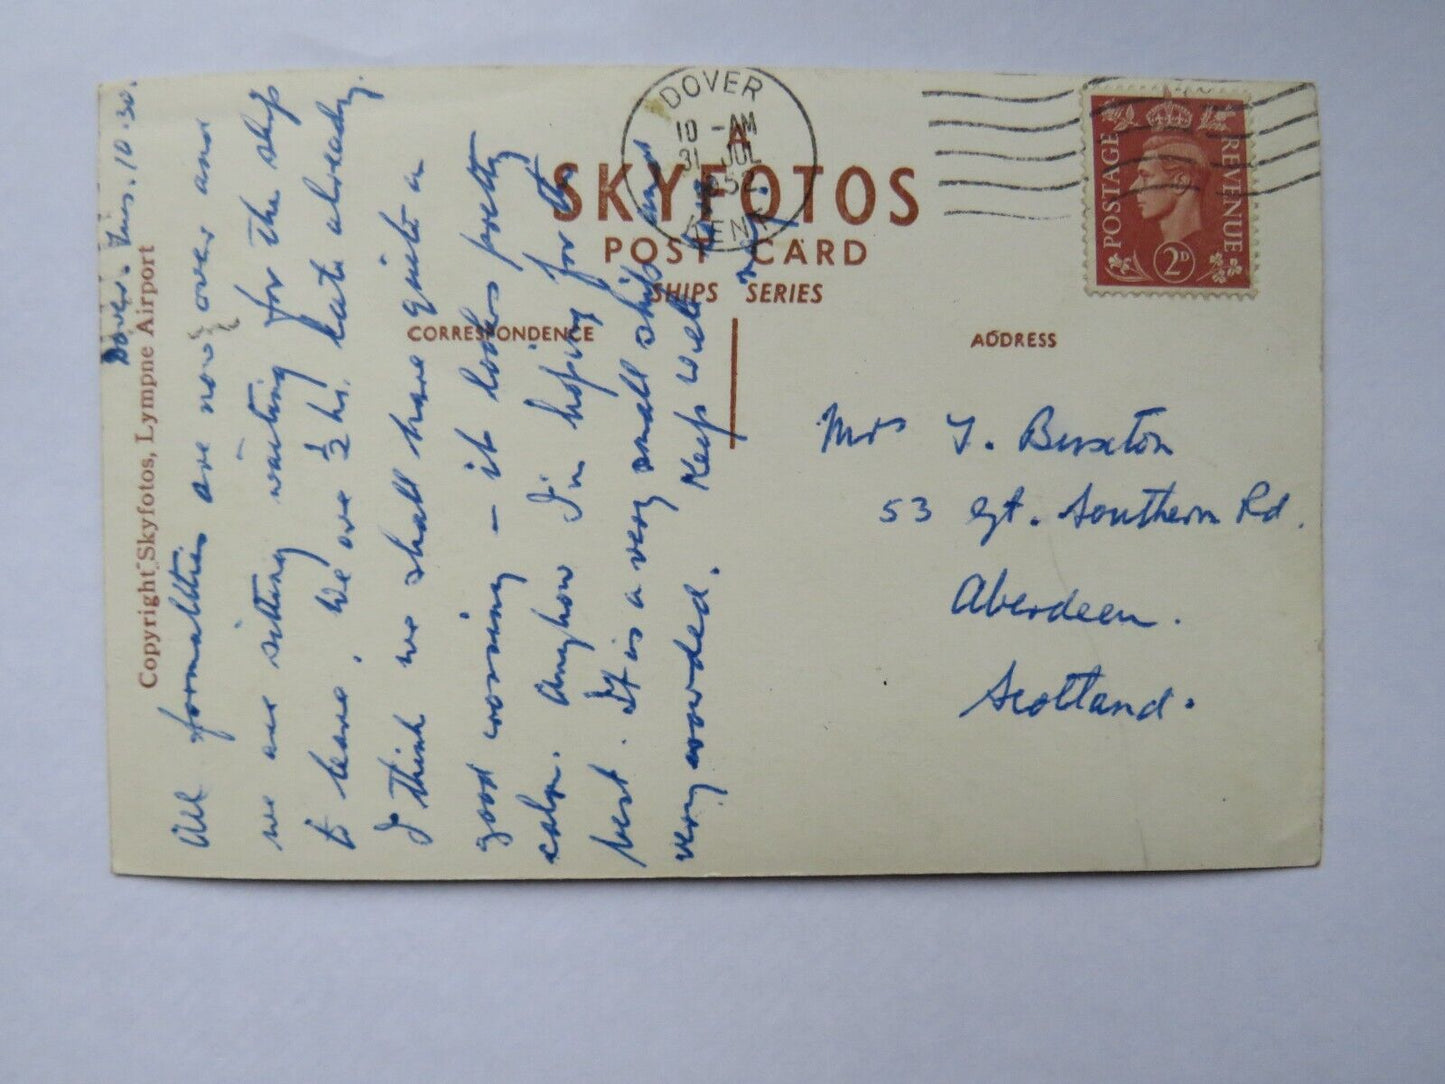 A
SKYFOTOS
POST CARD
SHIPS SERIES
CORRESPONDENCE
ADDRESS
DOVER
10 - AM
31 JUL
1952
KENT
POSTAGE
REVENUE
2D
Copyright Skyfotos, Lympne Airport
Dover. Thurs. 10.30.
All formalities are now over and
we are sitting waiting for the ship
to leave. We are ½ hr. late already.
I think we shall have quite a
good crossing – it looks pretty
calm. Anyhow I'm hoping for the
best. It is a very small ship and
very crowded. Keep well
Mrs J. Buxton
53 Gt. Southern Rd.
Aberdeen.
Scotland.